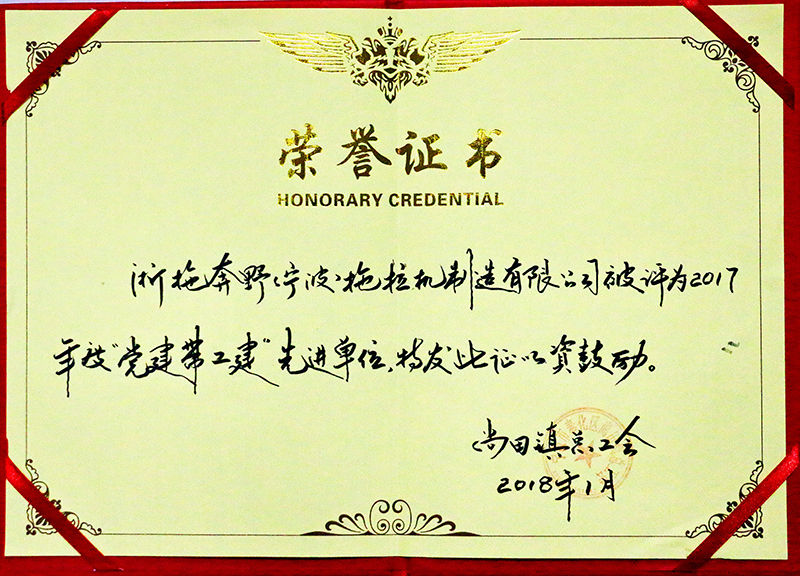 荣誉证书
HONORARY CREDENTIAL
浙拖奔野(宁波)拖拉机制造有限公司被评为2017
年度"党建带工建"先进单位,特发此证以资鼓励。
尚田镇总工会
2018年1月